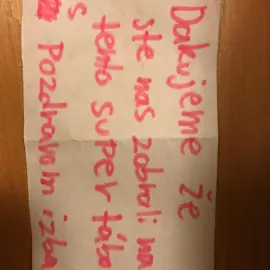 Dakujeme že
ste nas zobrali na
tento super tábo
s Pozdravom izba